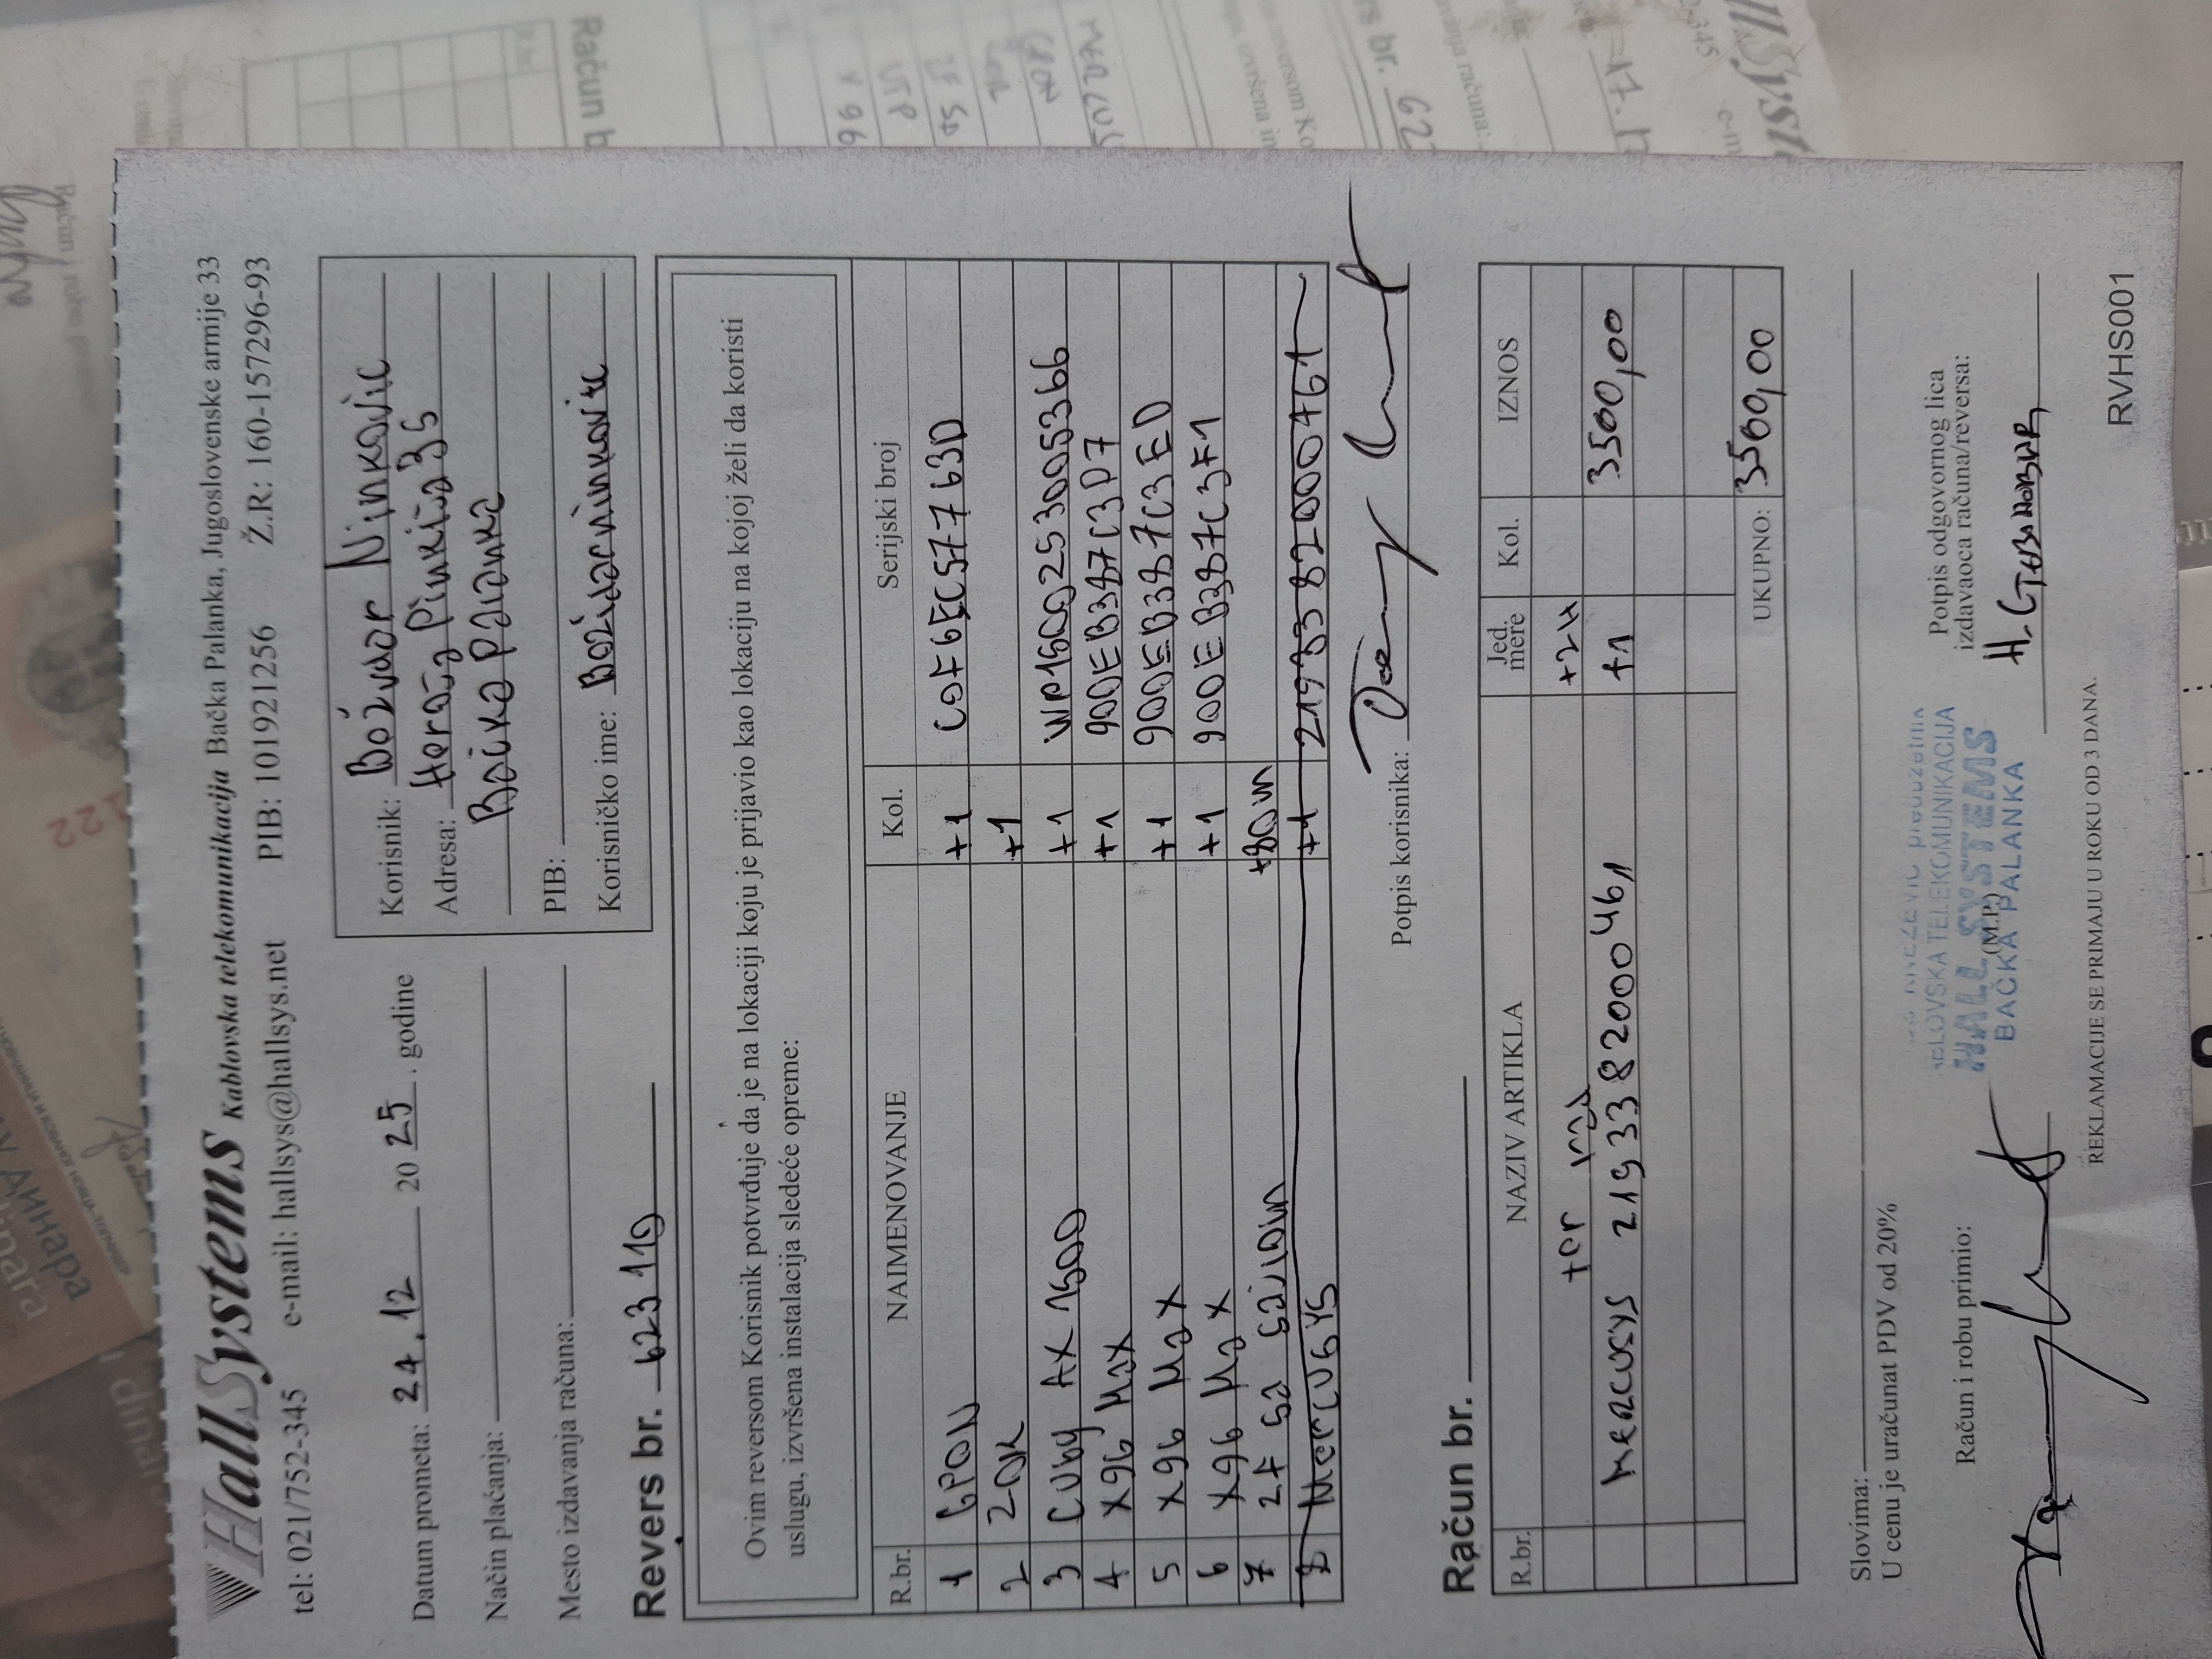 HallSystems Kablovska telekomunikacija Bačka Palanka, Jugoslovenske armije 33
tel: 021/752-345 e-mail: hallsys@hallsys.net PIB: 101921256 Ž.R: 160-157296-93
Datum prometa: 24.12 2025. godine
Način plaćanja:
Mesto izdavanja računa:
Korisnik: Božidar Ninkovic
Adresa: Heroja Pinkija 35
Bačka Palanka
PIB:
Korisničko ime: Bozidarninkovic
Revers br. 623 110
Ovim reversom Korisnik potvrđuje da je na lokaciji koju je prijavio kao lokaciju na kojoj želi da koristi
uslugu, izvršena instalacija sledeće opreme:
R.br. NAIMENOVANJE Kol. Serijski broj
1 GPON +1 C0F6EC577630
2 ZOK +1
3 CUDY AX 1500 +1 WR1500253005366
4 X96 Max +1 900EB3B7C3D7
5 X96 Max +1 900EB3B7C3ED
6 X96 Max +1 900EB3B7C3F1
7 2F sa sajlom +80m
8 Mercusys +1 2193382000461
Potpis korisnika:
Račun br.
R.br. NAZIV ARTIKLA Jed. mere Kol. IZNOS
ter rad +2H
MERCUSYS 2193382000461 +1 3500,00
UKUPNO: 3500,00
Slovima:
U cenu je uračunat PDV od 20%
Račun i robu primio:
Potpis odgovornog lica
izdavaoca računa/reversa:
TELEKOMUNIKACIJA
HALL SYSTEMS
(M.P.)
BAČKA PALANKA
REKLAMACIJE SE PRIMAJU U ROKU OD 3 DANA.
RVHS001
Račun b
rs br.
629